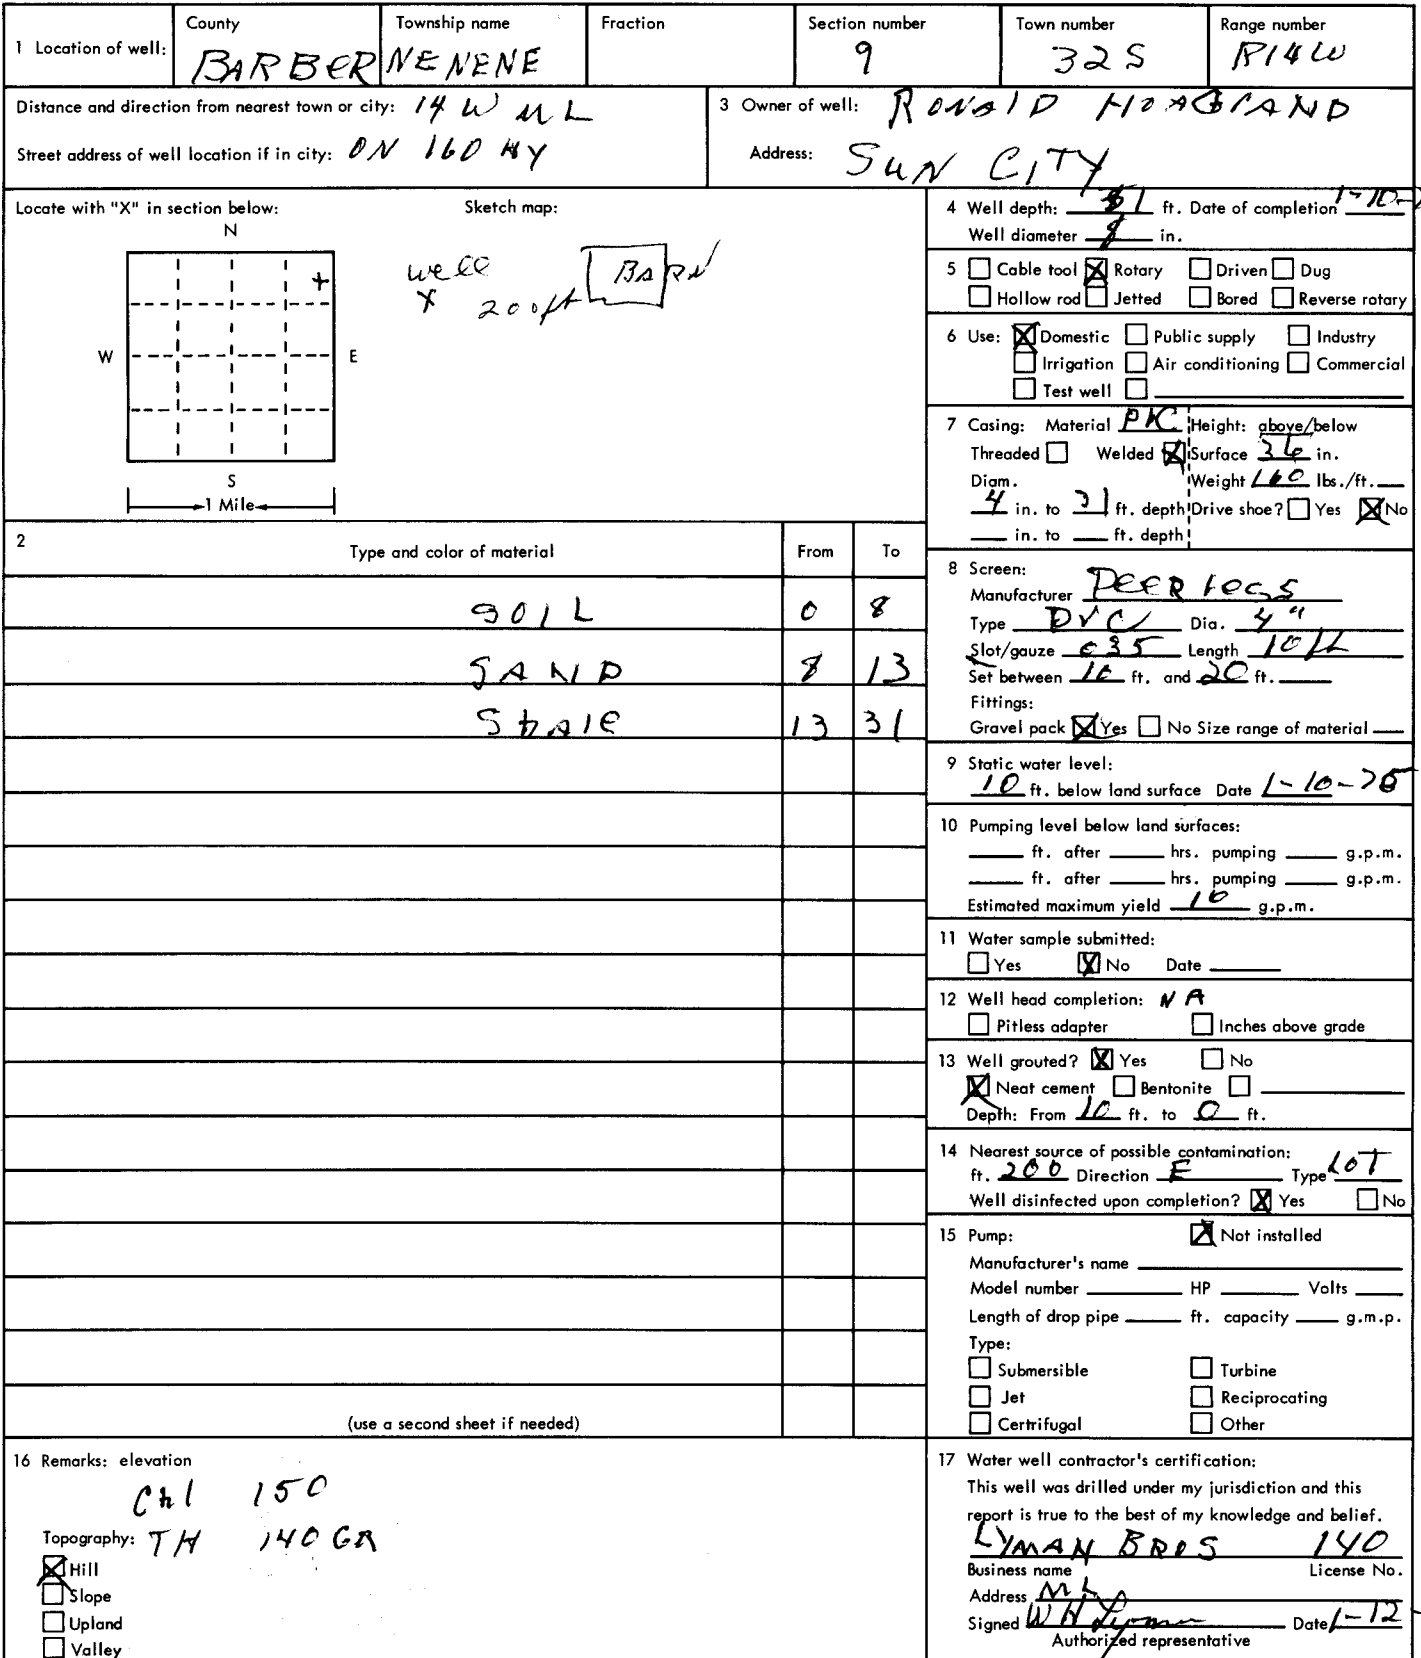 1 Location of well: County Township name Fraction Section number Town number Range number
BARBER NE NENE 9 32S R14W
Distance and direction from nearest town or city: 14 W ML
Street address of well location if in city: ON 160 HY
3 Owner of well: RONALD HOAGLAND
Address: SUN CITY
Locate with "X" in section below: Sketch map:
N
W E
S
1 Mile
well
X 200ft BARN
4 Well depth: 31 ft. Date of completion 1-10-
Well diameter 8 in.
5 Cable tool X Rotary Driven Dug
Hollow rod Jetted Bored Reverse rotary
6 Use: X Domestic Public supply Industry
Irrigation Air conditioning Commercial
Test well
7 Casing: Material PVC Height: above/below
Threaded Welded X Surface 36 in.
Diam. Weight 160 lbs./ft.
4 in. to 31 ft. depth Drive shoe? Yes X No
in. to ft. depth
2 Type and color of material From To
SOIL 0 8
SAND 8 13
Shale 13 31
(use a second sheet if needed)
8 Screen:
Manufacturer Peerless
Type PVC Dia. 4"
Slot/gauze 035 Length 10ft
Set between 10 ft. and 20 ft.
Fittings:
Gravel pack X Yes No Size range of material
9 Static water level:
10 ft. below land surface Date 1-10-75
10 Pumping level below land surfaces:
ft. after hrs. pumping g.p.m.
ft. after hrs. pumping g.p.m.
Estimated maximum yield 10 g.p.m.
11 Water sample submitted:
Yes X No Date
12 Well head completion: NA
Pitless adapter Inches above grade
13 Well grouted? X Yes No
X Neat cement Bentonite
Depth: From 10 ft. to 0 ft.
14 Nearest source of possible contamination:
ft. 200 Direction E Type LOT
Well disinfected upon completion? X Yes No
15 Pump: X Not installed
Manufacturer's name
Model number HP Volts
Length of drop pipe ft. capacity g.m.p.
Type:
Submersible Turbine
Jet Reciprocating
Certrifugal Other
16 Remarks: elevation
Chl 150
Topography: TH 140 GR
X Hill
Slope
Upland
Valley
17 Water well contractor's certification:
This well was drilled under my jurisdiction and this
report is true to the best of my knowledge and belief.
LYMAN BROS 140
Business name License No.
Address ML
Signed W H Lyman Date 1-12-
Authorized representative